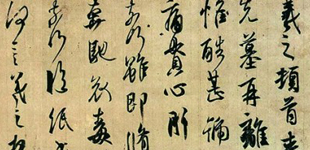 羲之頓首
先墓再離
惟酷甚號
痛貫心肝
奈何雖即脩
奔馳哀毒
奈何臨紙
何言羲之